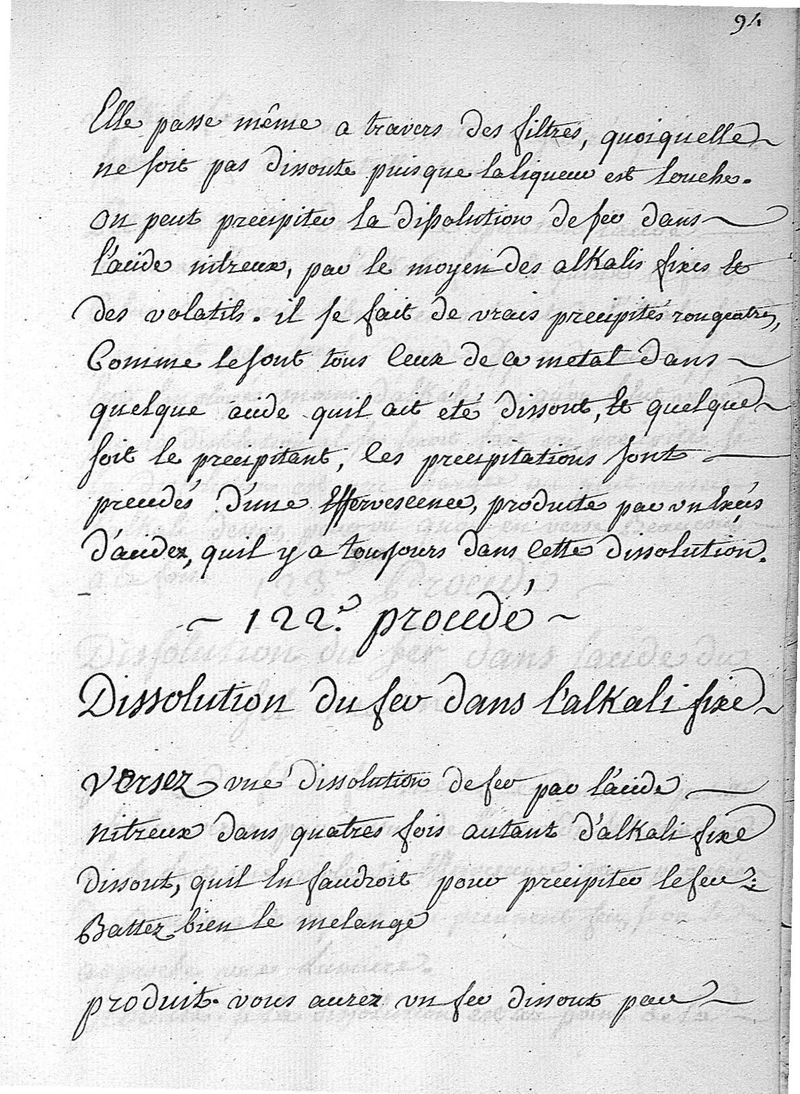 94
Elle passe même a travers des filtres, quoiquelle
ne soit pas dissoute puisque laliqueur est louche.
on peut precipiter la dissolution de fer dans
l'acide nitreux, par le moyen des alkalis fixes et
des volatils. il se fait de vrais precipités rougeatres,
Comme lesont tous ceux de ce metal dans
quelque acide quil ait eté dissout, et quelque
soit le precipitant, les precipitations sont
precedés d'une effervescence, produite par un Excés
d'acidez, quil y a toujours dans cette dissolution.
~ 122.e procedé ~
Dissolution du fer dans l'alkali fixe
Versez une dissolution de fer par l'acide
nitreux dans quatres fois autant d'alkali fixe
dissout, quil en faudroit pour precipiter le fer:
Battez bien le melange
produit. vous aurez un fer dissout par